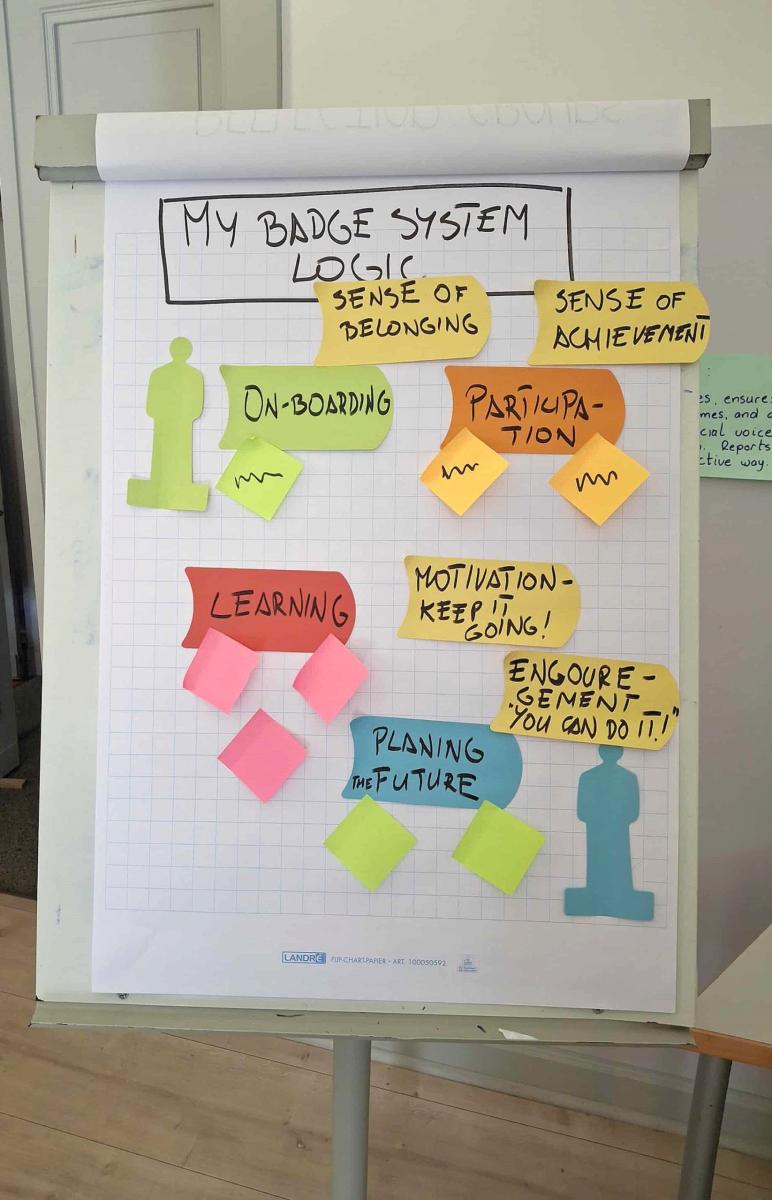 MY BADGE SYSTEM
LOGIC
SENSE OF
BELONGING
SENSE OF
ACHIEVEMENT
ON-BOARDING
PARTICIPA-
TION
es, ensures
mes, and
cial voice
Reports
ctive way.
LEARNING
MOTIVATION-
KEEP IT
GOING!
ENGOURE-
GEMENT
"YOU CAN DO IT!"
PLANING
THE FUTURE
LANDRÉ FLIP-CHART-PAPIER • ART. 100050592